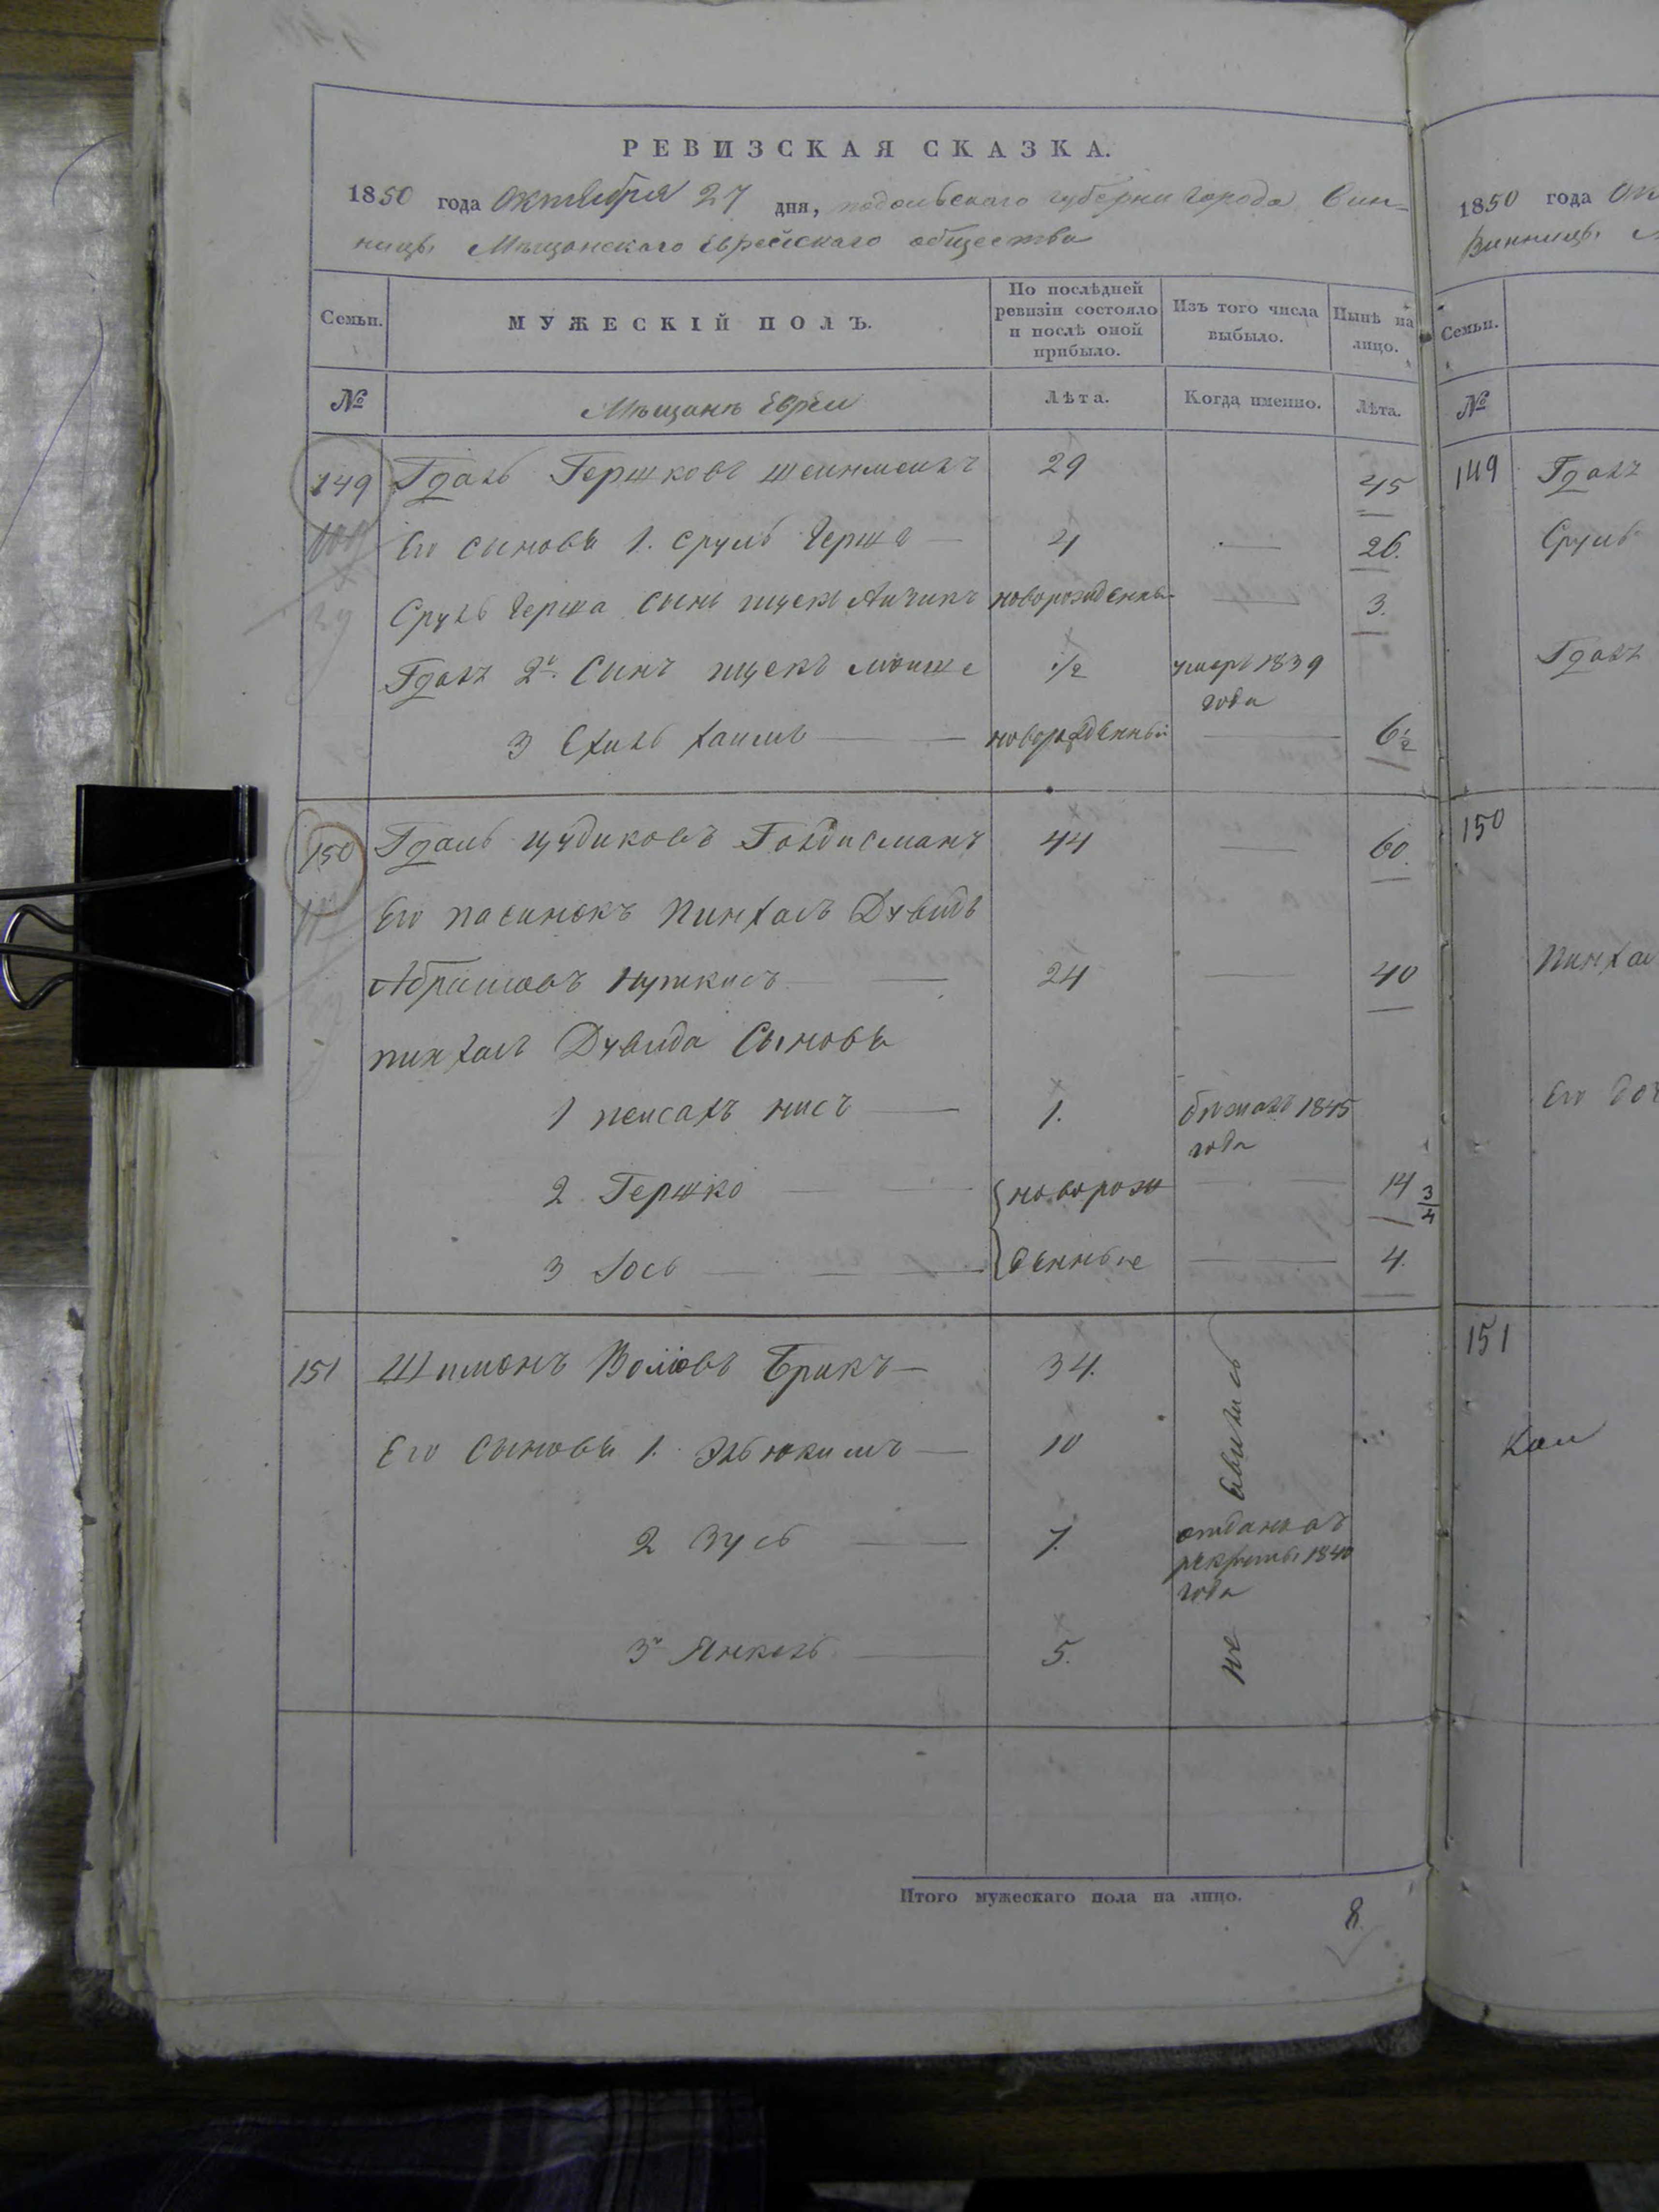 РЕВИЗСКАЯ СКАЗКА.
1850 года Октября 27 дня, подольскаго губерни города Вин-
ницы Мѣщанскаго Еврейскаго общества
Семьи.
МУЖЕСКІЙ ПОЛЪ.
По послѣдней ревизіи состояло и послѣ оной прибыло.
Изъ того числа выбыло.
Нынѣ на лицо.
№ Мѣщанъ Евреи Лѣта. Когда именно. Лѣта.
149 Гдаль Гершковъ 29 45
Его сыновья 1. Сруль Герша 26.
Сруль Герша сынъ новорожденны 3.
Гдаль 2й Сынъ ицекъ моише 1/2 умеръ 1839
года
3 Ехиль хаимъ новорожденный 6 1/2
150 Гдаль Голдисманъ 44 60.
Его пасинокъ Пинхасъ Дувидъ
Абрамовъ 24 40
пинхасъ Дувида Сыновья
1 пейсахъ нисъ 1. бежалъ 1845
года
2 Гершко новорож 14 3/4
3 Іось денные 4.
151 Шимонъ Волковъ Брикъ 34.
Его сыновья 1. Эльюкимъ 10
2 Зусь 7. отданъ въ
рекруты 1840
года
3й Янкель 5.
не явились
Итого мужескаго пола на лицо.
8
1850 года Ок
Винницы
Семьи.
№
149 Гдаль
Сруль
Гдаль
150
Пинхас
Его доч
151